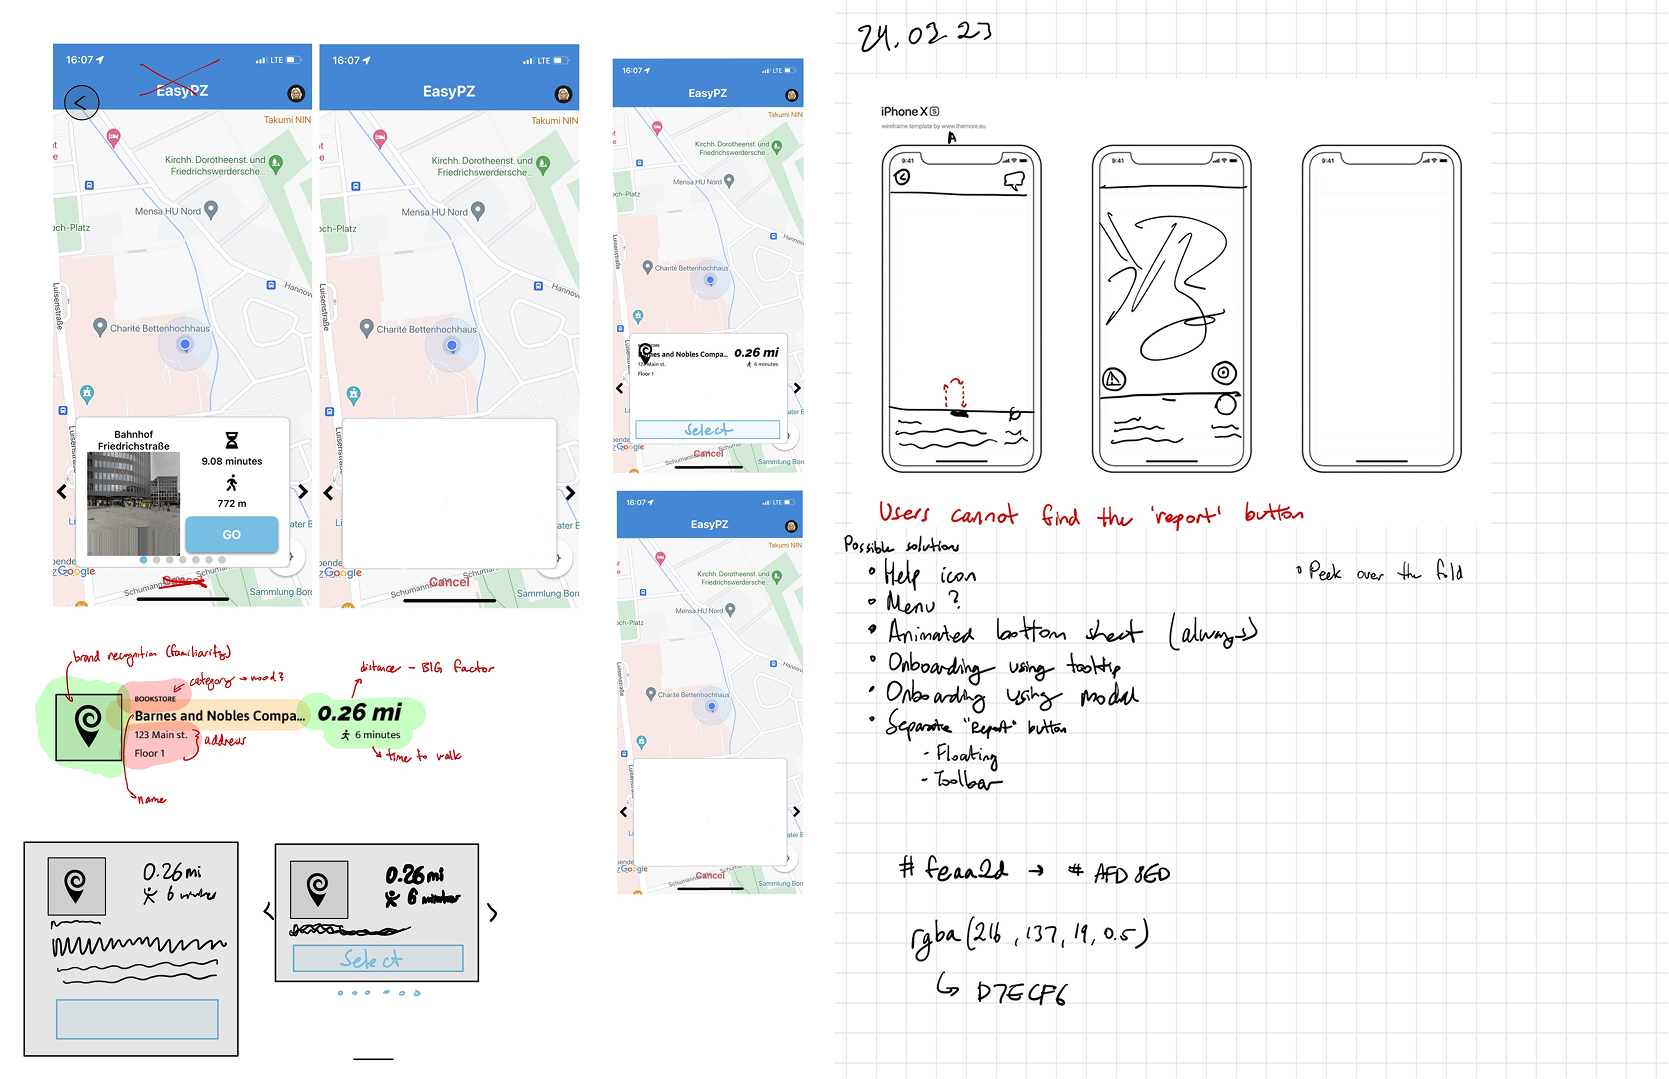 16:07
LTE
EasyPZ
Takumi NIN
Kirchh. Dorotheenst. und
Friedrichswerdersche...
Mensa HU Nord
och-Platz
Luisenstraße
Hannov
Charité Bettenhochhaus
Bahnhof
Friedrichstraße
9.08 minutes
772 m
GO
Google
Cancel
Schumannstr
Sammlung Bor
16:07
LTE
EasyPZ
Takumi NIN
Kirchh. Dorotheenst. und
Friedrichswerdersche...
Mensa HU Nord
och-Platz
Luisenstraße
Hannov
Charité Bettenhochhaus
ater B
Google
Cancel
Sammlung Bor
16:07
LTE
EasyPZ
Takumi NIN
Kirchh. Dorotheenst. und
Friedrichswerdersche...
Mensa HU Nord
och-Platz
Luisenstraße
Hannov
Charité Bettenhochhaus
Barnes and Nobles Compa...
0.26 mi
123 Main st.
6 minutes
Floor 1
ater B
Select
Google
Cancel
Sammlung Bor
16:07
LTE
EasyPZ
Takumi NIN
Kirchh. Dorotheenst. und
Friedrichswerdersche...
Mensa HU Nord
och-Platz
Luisenstraße
Hannov
Charité Bettenhochhaus
ater B
Google
Cancel
Sammlung Bor
brand recognition (familiarity)
category → mood?
distance - BIG factor
BOOKSTORE
Barnes and Nobles Compa...
0.26 mi
123 Main st.
address
6 minutes
Floor 1
time to walk
name
0.26 mi
6 minutes
0.26 mi
6 minutes
Select
24.03.23
iPhone XS
wireframe template by www.themore.eu
A
9:41
9:41
9:41
Users cannot find the 'report' button
Possible solutions
• Help icon
• Menu ?
• Animated bottom sheet (always)
• Onboarding using tooltip
• Onboarding using modal
• Separate "Report" button
- Floating
- Toolbar
• Peek over the fold
#feaa2d → #AFD8ED
rgba(216, 137, 19, 0.5)
↳ D7ECF6